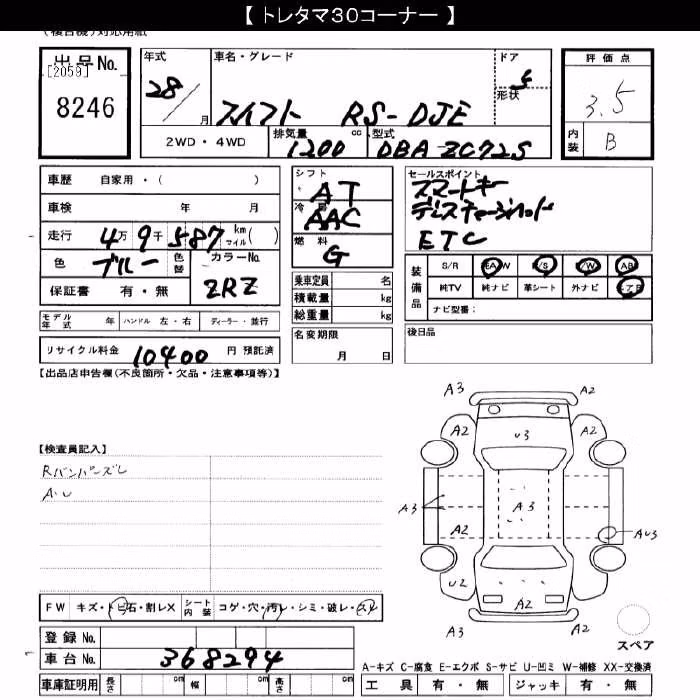 【 トレタマ30コーナー 】
(複合機)対応用紙
出品No. [2059] 8246
年式 28 月
車名・グレード スイフト RS-DJE
ドア 5 形状
評価点 3.5
内装 B
2WD・4WD
排気量 1200 cc
型式 DBA-ZC72S
車歴 自家用・( )
車検 年 月
走行 4万9千587 km マイル( )
色 ブルー 色替 カラーNo. ZRZ
保証書 有・無
シフト AT
冷房 AAC
燃料 G
乗車定員 名
積載量 kg
総重量 kg
セールスポイント
スマートキー
ディスチャージヘッド
ETC
装備品 S/R A/W P/S P/W AB
純TV 純ナビ 革シート 外ナビ エアB
ナビ型番:
モデル年式 年 ハンドル 左・右 ディーラー・並行
名変期限 月 日
後日品
リサイクル料金 10400 円 預託済
【出品店申告欄(不良箇所・欠品・注意事項等)】
【検査員記入】
Rバンパーズレ
A・U
A3 A2
A2 U3 A2
A3 A3
A2 AU3
U2 A2
A3 A2
スペア
FW キズ・トビ石・割レX シート内装 コゲ・穴・汚レ・シミ・破レ・スレ
登録No.
車台No. 368294
車庫証明用 長さ cm 幅 cm 高さ cm
A-キズ C-腐食 E-エクボ S-サビ U-凹ミ W-補修 XX-交換済
工具 有・無 ジャッキ 有・無